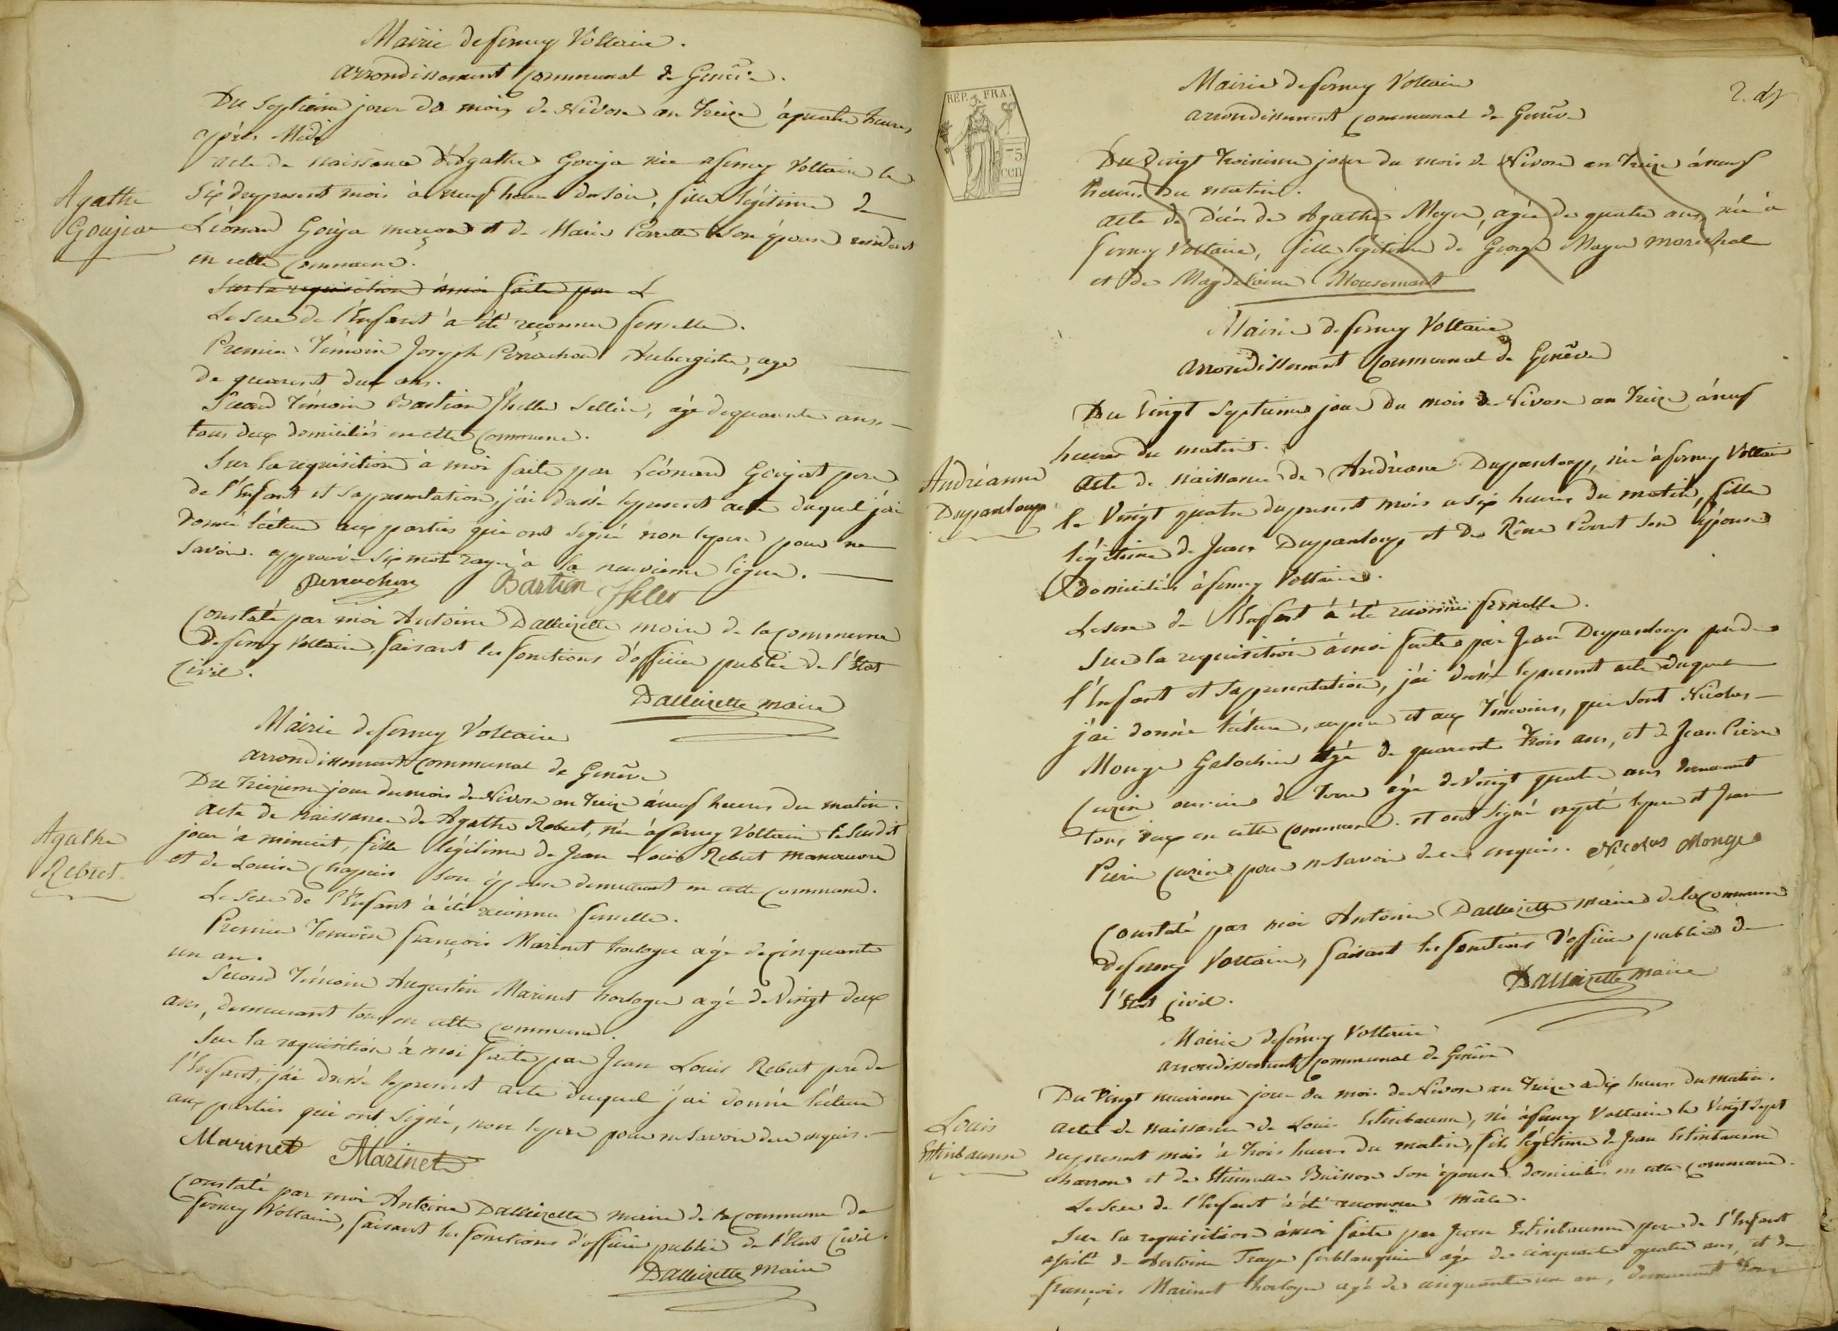 Mairie de ferney Voltaire.
arrondissement Communal de Genêve.
Du Septième jour du mois de Nivose an treize à quatre heures
après Midi
acte de naissance d'Agathe Goujat née a ferney Voltaire le
Six du present mois à neuf heures du soir, fille légitime de
Agathe
Goujat
Léonard Goujat maçon et de Marie Perrette son épouse residents
en cette Commune.
Sur la requisition à moi faite par L
Le Sexe de l'Enfant à été reconnu femelle.
Premier Témoin Joseph Perrachon Aubergiste, age
de quarent deux ans.
Second Témoin Bastian Iseller Sellier, âgé de quarante ans
tous deux domiciliés en cette Commune.
Sur la requisition à moi faite par Léonard Goujat pere
de l'Enfant et sa presentation, j'ai dressé le present acte duquel j'ai
donné lécture aux parties qui ont Signé non le pere pour ne
savoir. approuvé Six mots rayés à la neuvieme ligne.
Perrachon Bastien Iseler
Constaté par moi Antoine Dalloizette maire de la Commune
de ferney Voltaire, faisant les fonctions d'officier public de l'Etat
Civil.
Dalloizette maire
Mairie de ferney Voltaire
arrondissement Communal de Genêve
Du treizieme jour du mois de Nivose an treize à neuf heures du matin.
acte de naissance de Agathe Rebut, née à ferney Voltaire le Susdit
Agathe
Rebut
jour à minuit, fille légitime de Jean Louis Rebut manoeuvre
et de Louise Chapuis son épouse demeurant en cette Commune.
Le Sexe de l'Enfant à été reconnu femelle.
Premier Temoin françois Marinet horloger agé de Cinquante
un an.
Second Témoin Augustin Marinet horloger agé de Vingt deux
ans, demeurant tous en cette Commune.
Sur la requisition à moi faite par Jean Louis Rebut pere de
l'Enfant, j'ai dressé le present acte duquel j'ai donné lécture
aux parties qui ont Signé, non le pere pour ne Savoir de ce enquis.
Marinet Marinet
Constaté par moi Antoine Dalloizette maire de la Commune de
ferney Voltaire, faisant les fonctions d'officier public de l'Etat Civil.
Dalloizette maire
REP. FRA.
75
cen
2.
Mairie de ferney Voltaire
arrondissement Communal de Genêve
Du Vingt troisieme jour du mois de Nivose an treize à neuf
heures du matin.
acte de décés de Agathe Meyer, agée de quatre ans, née à
ferney Voltaire, fille légitime de George Meyer marechal
et de Magdelaine
Mairie de ferney Voltaire
arrondissement Communal de Genêve
Du Vingt Septieme jour du mois de Nivose an treize à neuf
heures du matin.
Andrianne
Dupanloup
acte de naissance de Andriane Dupanloup, née à ferney Voltaire
le Vingt quatre du present mois a six heures du matin, fille
légitime de Jean Dupanloup et de Réne Perret son épouse
domiciliés à ferney Voltaire.
Le sexe de l'Enfant à été reconnu femelle.
Sur la requisition à moi faite par Jean Dupanloup pere de
l'Enfant et sa presentation, j'ai dressé le present acte duquel
j'ai donné lécture, au pere et aux Témoins, qui sont Nicolas
Monge Galochier âgé de quarent trois ans, et de Jean Pierre
âgé de Vingt quatre ans demeurant
tous deux en cette Commune. et ont Signé excepté le pere et Jean
Pierre pour ne Savoir de ce enquis. Nicolas Monge
Constaté par moi Antoine Dalloizette maire de la Commune
de ferney Voltaire, faisant les fonctions d'officier public de
l'Etat Civil.
Dalloizette maire
Mairie de ferney Voltaire
arrondissement Communal de Genêve
Du Vingt neuvieme jour du mois de Nivose an treize a dix heures du matin.
Louis
Estinbaume
acte de naissance de Louis Estinbaume, né à ferney Voltaire le Vingt Sept
du present mois à trois heures du matin, fils légitime de Jean Estinbaume
charron et de Etiennette Buisson son épouse domiciliés en cette Commune.
Le Sexe de l'Enfant à été reconnu mâle.
Sur la requisition à moi faite par Jean Estinbaume pere de l'Enfant
assisté de Antoine ferblanquier agé de cinquante quatre ans, et de
françois Marinet horloger agé de cinquante un an, demeurant tous